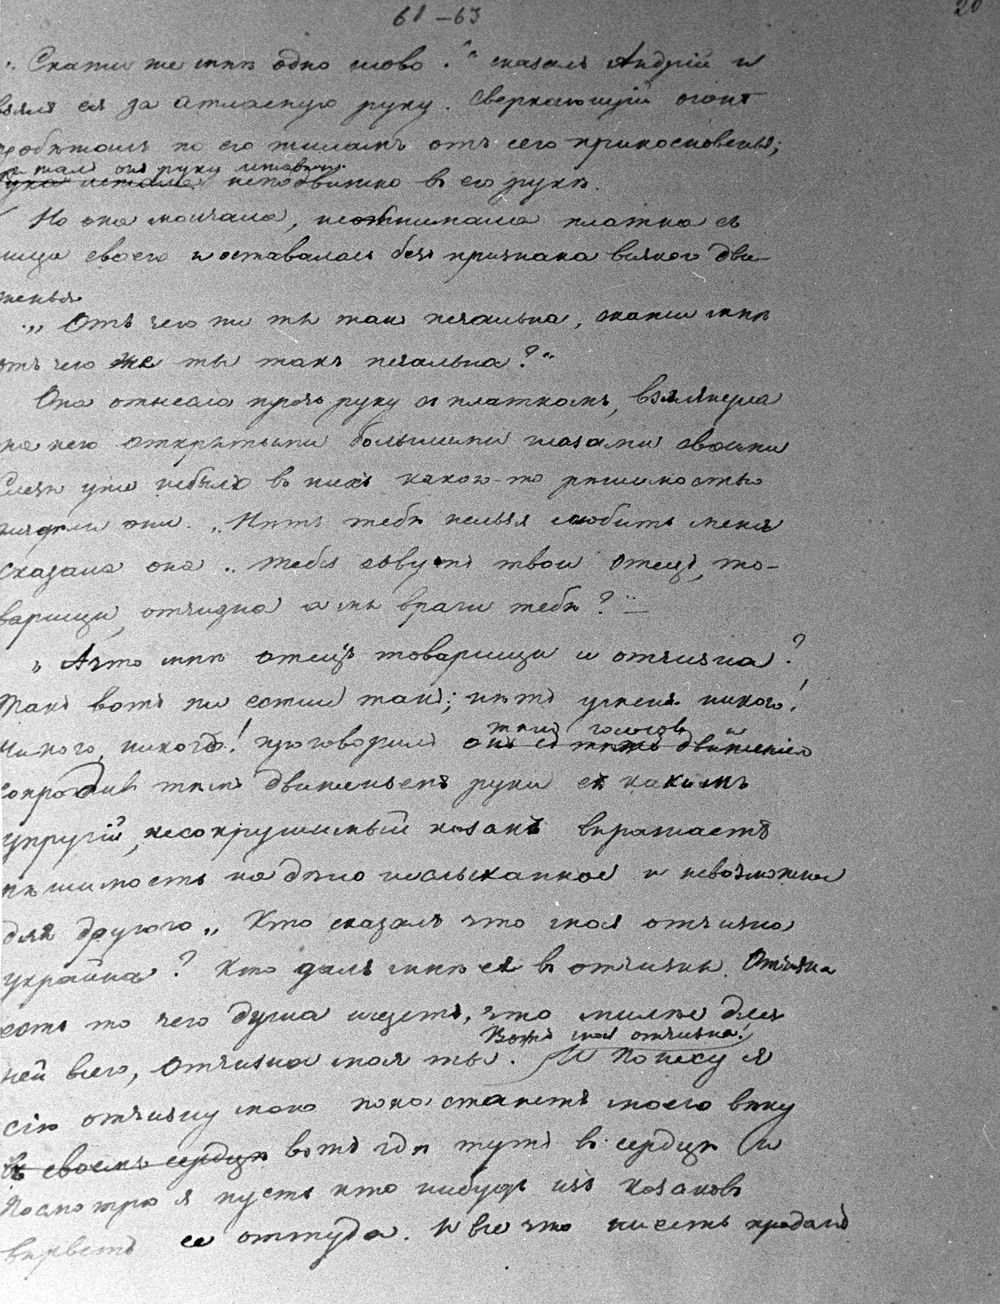 61 – 63
20
„Скажи же мнѣ одно слово!“ сказалъ Андрій и
взялъ ея за атласную руку. Сверкающій огонь
пробѣжалъ по его жиламъ отъ сего прикосновенья;
руку
неподвижно в его рукѣ.
Но она молчала, неотнимала платка съ
лица своего и оставалась безъ признака всякого дви-
женья
„Отъ чего же ты такъ печальна, скажи мнѣ
отъ чего же ты такъ печальна?“
Она отняла прочь руку съ платкомъ, взглянула
на него открытыми большими глазами своими
Слезъ уже небыло в нихъ какою-то рѣшимостью
они. „Нѣтъ тебѣ нельзя любить меня
сказала она „тебя зовутъ твои отецъ, то-
варищи, отчизна а мы враги тебѣ?“ —
„А что мнѣ отецъ товарищи и отчизна?
Такъ вотъ же если такъ; нѣтъ у меня никого!
Никого, никого! проговорилъ онъ съ тѣмъ движеніемъ
тѣмъ голосомъ и
сопроводив тѣмъ движеньемъ руки съ какимъ
упругій, несокрушимый козакъ выражаетъ
рѣшимость на дѣло неслыханное и невозможное
для другого „Кто сказалъ что моя отчизна
украйна? Кто далъ мнѣ ея в отчизны. Отчизна
есть то чего душа ищетъ, что милѣе для
Вотъ моя отчизна!
ней всего, Отчизна моя ты. И Понесу я
сію отчизну мою пока станетъ моего вѣку
въ своемъ сердцѣ вотъ гдѣ тутъ в сердцѣ и
Посмотрю я пусть кто нибудь изъ козаковъ
вырветъ ее оттуда. И все что ни есть продамъ